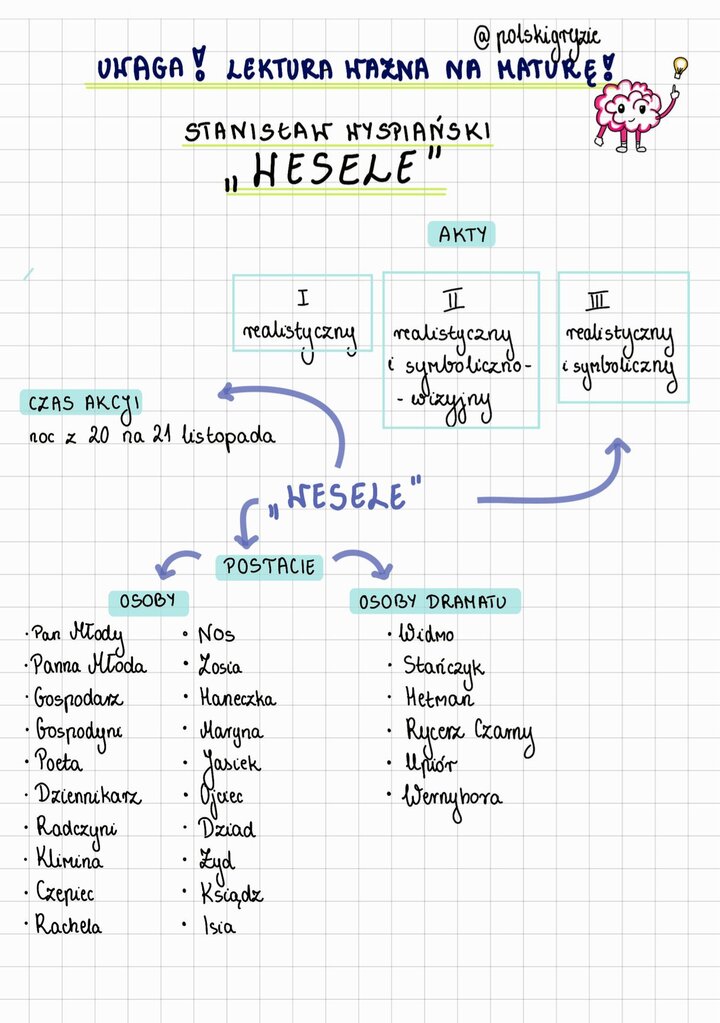 @polskigryzie
UWAGA! LEKTURA WAŻNA NA MATURĘ!
STANISŁAW WYSPIAŃSKI
„WESELE”
AKTY
I
realistyczny
II
realistyczny
i symboliczno-
- wizyjny
III
realistyczny
i symboliczny
CZAS AKCJI
noc z 20 na 21 listopada
„WESELE”
POSTACIE
OSOBY
· Pan Młody
· Panna Młoda
· Gospodarz
· Gospodyni
· Poeta
· Dziennikarz
· Radczyni
· Klimina
· Czepiec
· Rachela
· Nos
· Zosia
· Haneczka
· Maryna
· Jasiek
· Ojciec
· Dziad
· Żyd
· Ksiądz
· Isia
OSOBY DRAMATU
· Widmo
· Stańczyk
· Hetman
· Rycerz Czarny
· Upiór
· Wernyhora